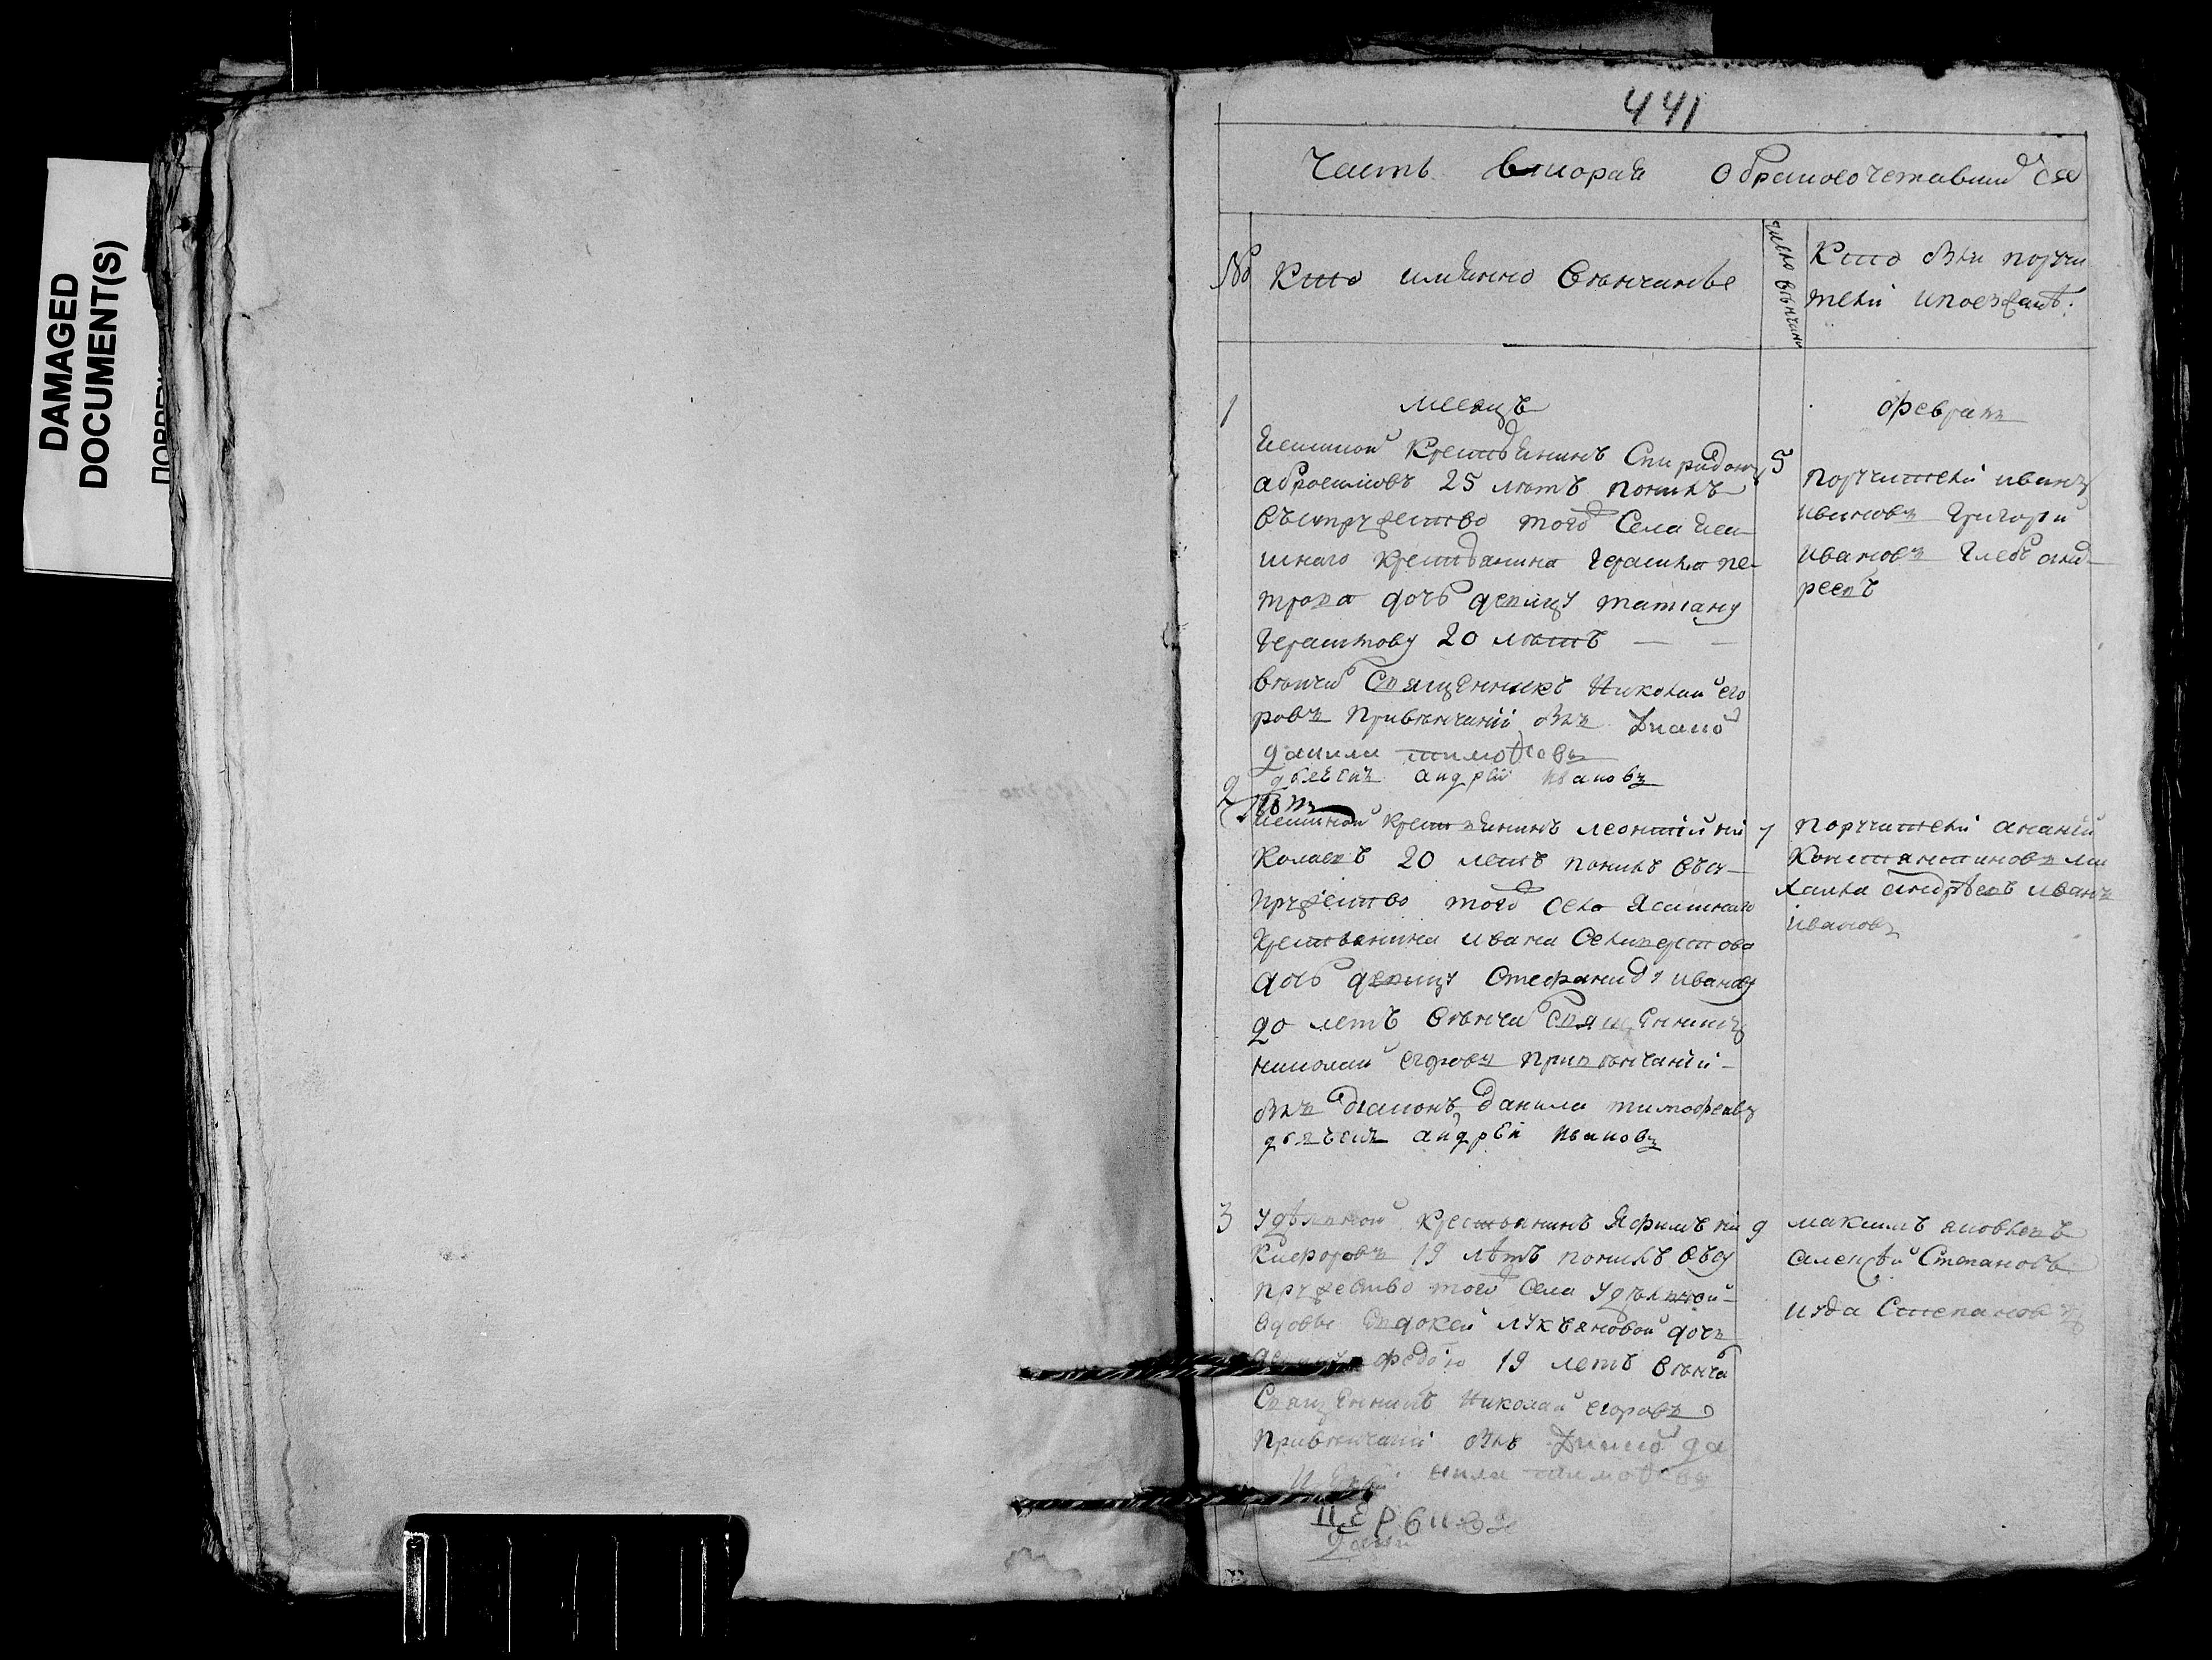 DAMAGED
DOCUMENT(S)
441
Часть вторая о браковочетавши ся
№ Кто именно венчаные
число венчани
Кто были поручи
тели и поезжанѣ:
1 месяцъ
февраль
крестьянинъ Спиридонъ 5
абросимовъ 25 лѣтъ понялъ
въ супружество того Села
крестьянина герасима пе-
трова дочь девицу татиану
герасимову 20 лѣтъ
венчалъ Священникъ Николай его
ровъ привенчании былъ Диако
данила тимоѳеевъ
дьячекъ андрей ивановъ
поручители иванъ
ивановъ григори
ивановъ глебъ анд-
реевъ
2
крестьянинъ леонтий ни 7
колаевъ 20 летъ понялъ въсу-
пружество того села
крестьянина ивана Селиверстова
дочь девицу Стефаниду иванову
20 летъ венчалъ Священникъ
николай егоровъ привенчании
былъ диаконъ данила тимофеевъ
дьячекъ андрей ивановъ
поручители ананий
Константиновъ ми
хаила андреевъ иванъ
ивановъ
3 Удѣльной крестьянинъ Яфимъ ни 9
кифоровъ 19 лѣтъ понялъ въсу
пружество того села удѣльной
вдовы Евдокеи лукьяновой дочь
19 летъ венчалъ
Священникъ Николай егоровъ
привенчании былъ Диако да
нила тимоѳеевъ
максимъ яковлевъ
алексѣй Степановъ
иуда Степановъ